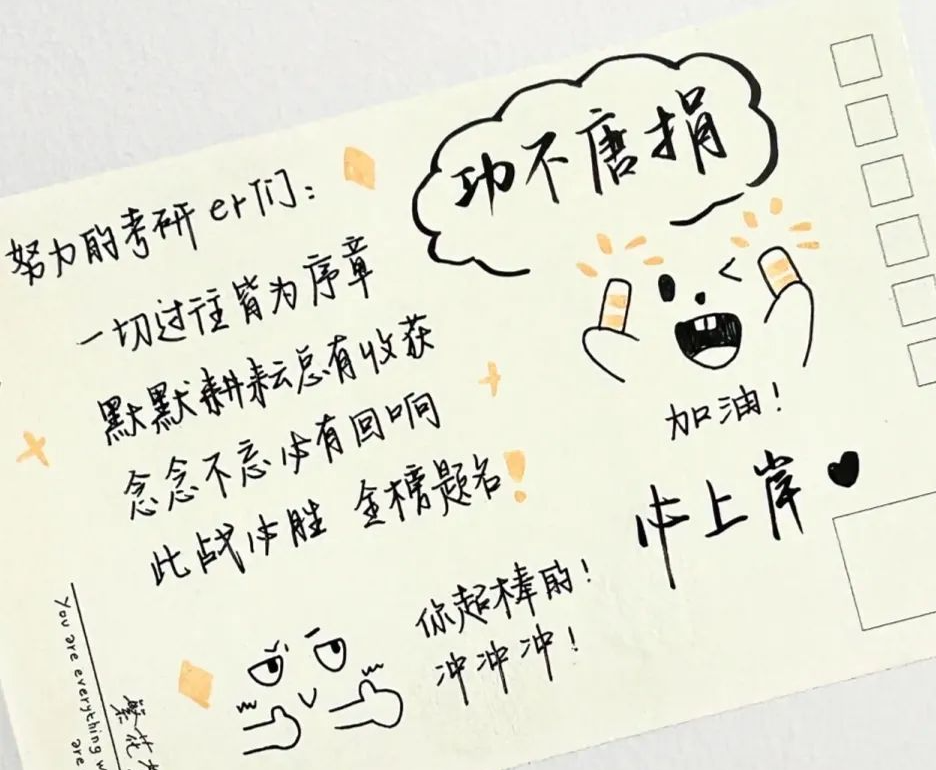 努力的考研er们：
一切过往皆为序章
默默耕耘总有收获
念念不忘必有回响
此战必胜 金榜题名！
功不唐捐
加油！
必上岸
你超棒的！
冲冲冲！
You are everything
are
繁花